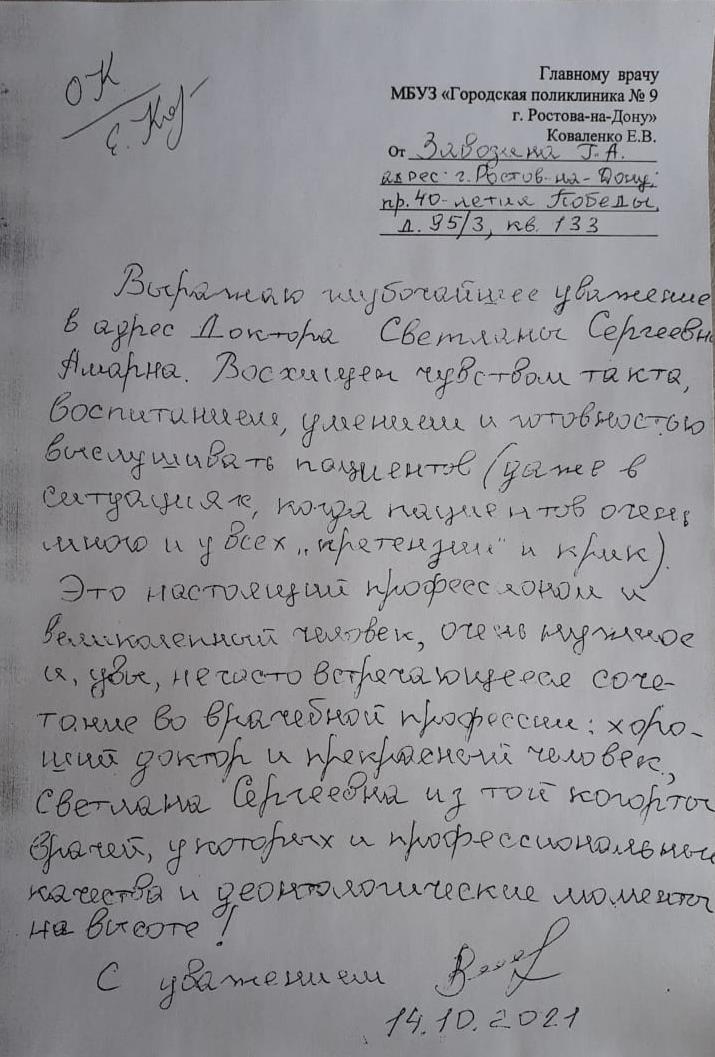 ОК
Е. Ков
Главному врачу
МБУЗ «Городская поликлиника № 9
г. Ростова-на-Дону»
Коваленко Е.В.
От Завозина Г.А.
адрес: г. Ростов-на-Дону,
пр. 40-летия Победы,
д. 95/3, кв. 133
Выражаю глубочайшее уважение
в адрес Доктора Светланы Сергеевн
Амарна. Восхищен чувством такта,
воспитанием, умением и готовностью
выслушивать пациентов (даже в
ситуациях, когда пациентов очень
много и у всех „претензии" и крик).
Это настоящий профессионал и
великолепный человек, очень нужное
и, увы, нечасто встречающееся соче-
тание во врачебной профессии: хоро-
ший доктор и прекрасный человек.
Светлана Сергеевна из той когорты
врачей, у которых и профессиональные
качества и деонтологические моменты
на высоте!
С уважением
14.10.2021